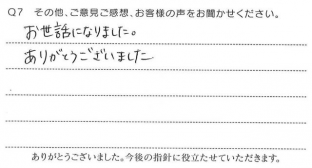 Q7 その他、ご意見ご感想、お客様の声をお聞かせください。
お世話になりました。
ありがとうございました
ありがとうございました。今後の指針に役立たせていただきます。